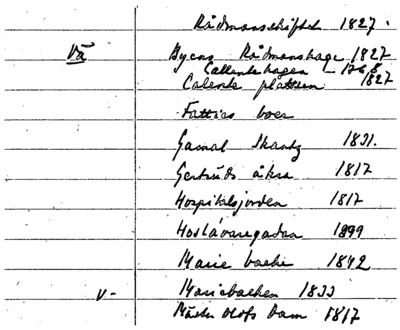 Rådmanskiftet 1827.
Vä Byens Rådmanshage 1827
Callentehagen – 1768
Calente plattsen 1827
Fattigs boer
Gamal Skantz 1831.
Gertruds åkra 1817
Hospitalsjorden 1817
Hoslåvaregadan 1899
Marie backe 1842
V- Mariebacken 1833
Mäster Olofs dam 1817